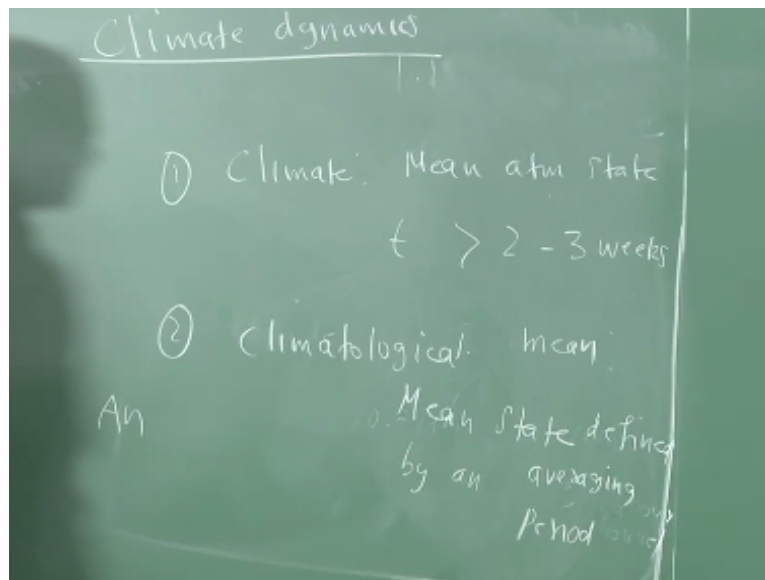 Climate dynamics
1.1
① Climate: Mean atm state
t > 2 - 3 weeks
② Climatological mean:
An
Mean state defined
by an averaging
Period